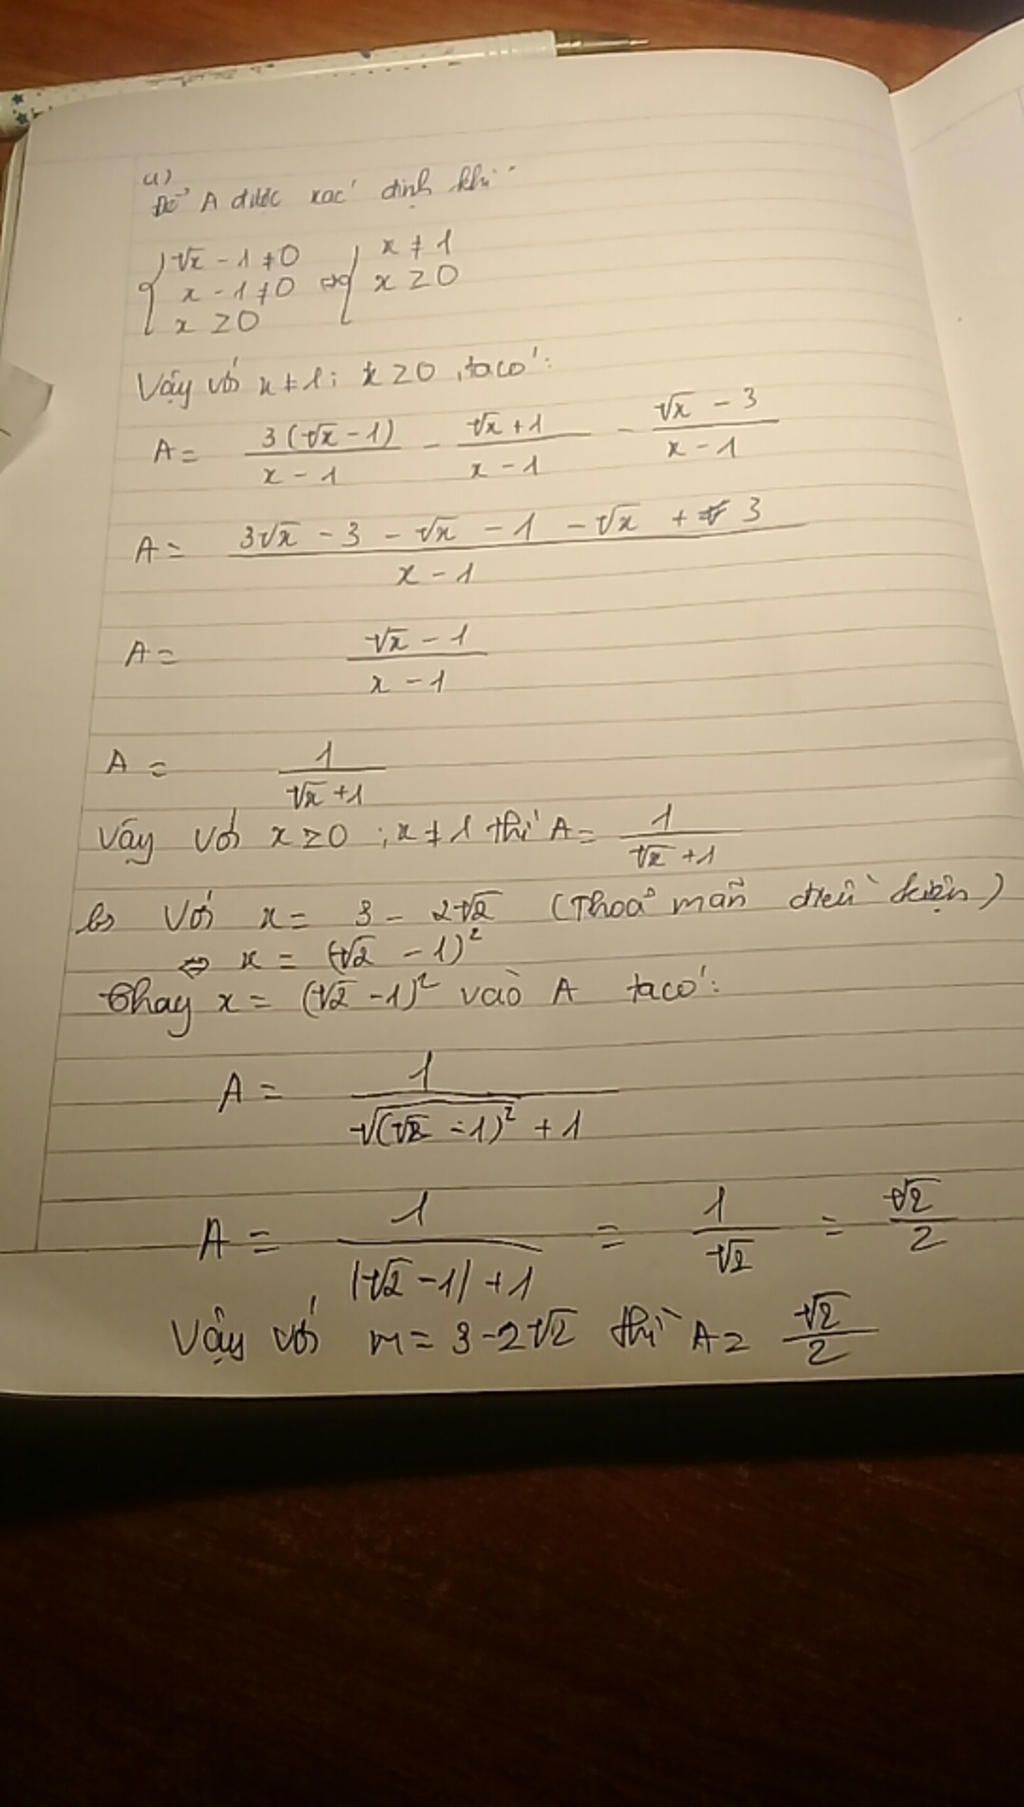 a)
Để A được xác định khi
{ √x - 1 ≠ 0 x - 1 ≠ 0 x ≥ 0 ⇔ { x ≠ 1 x ≥ 0
Vậy với x ≠ 1; x ≥ 0, ta có:
A = 3(√x - 1)/(x - 1) - (√x + 1)/(x - 1) - (√x - 3)/(x - 1)
A = (3√x - 3 - √x - 1 - √x + 3)/(x - 1)
A = (√x - 1)/(x - 1)
A = 1/(√x + 1)
Vậy với x ≥ 0; x ≠ 1 thì A = 1/(√x + 1)
b) Với x = 3 - 2√2 (Thoả mãn điều kiện)
⇔ x = (√2 - 1)²
Thay x = (√2 - 1)² vào A ta có:
A = 1/(√(√2 - 1)² + 1)
A = 1/(|√2 - 1| + 1) = 1/√2 = √2/2
Vậy với x = 3 - 2√2 thì A = √2/2